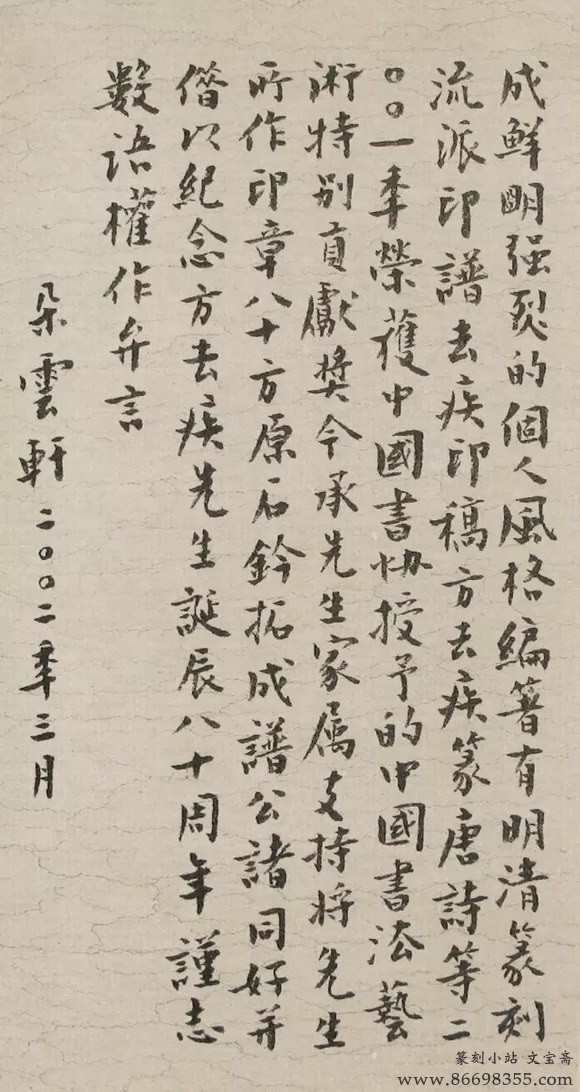 成鮮明强烈的個人風格編著有明清篆刻
流派印譜去疾印稿方去疾篆唐詩等二
〇〇一年榮獲中國書協授予的中國書法藝
術特别貢獻獎今承先生家属支持将先生
所作印章八十方原石鈐拓成譜公諸同好并
借以紀念方去疾先生誕辰八十周年謹志
數語權作弁言
朵雲軒二〇〇二年三月
篆刻小站 文宝斋
www.86698355.com